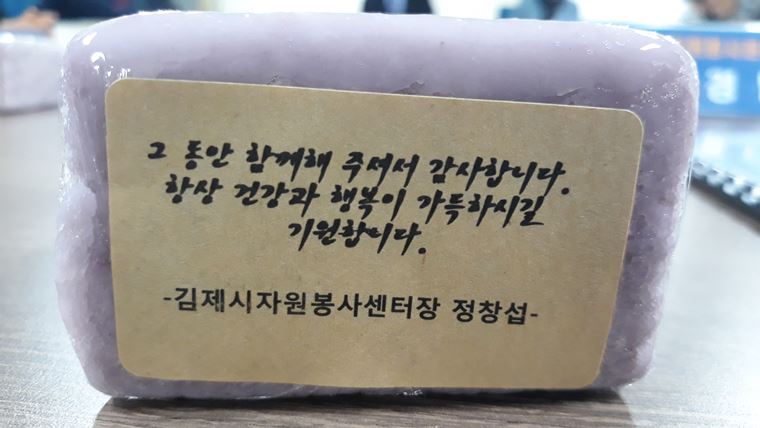 그 동안 함께해 주셔서 감사합니다.
항상 건강과 행복이 가득하시길
기원합니다.
-김제시자원봉사센터장 정창섭-